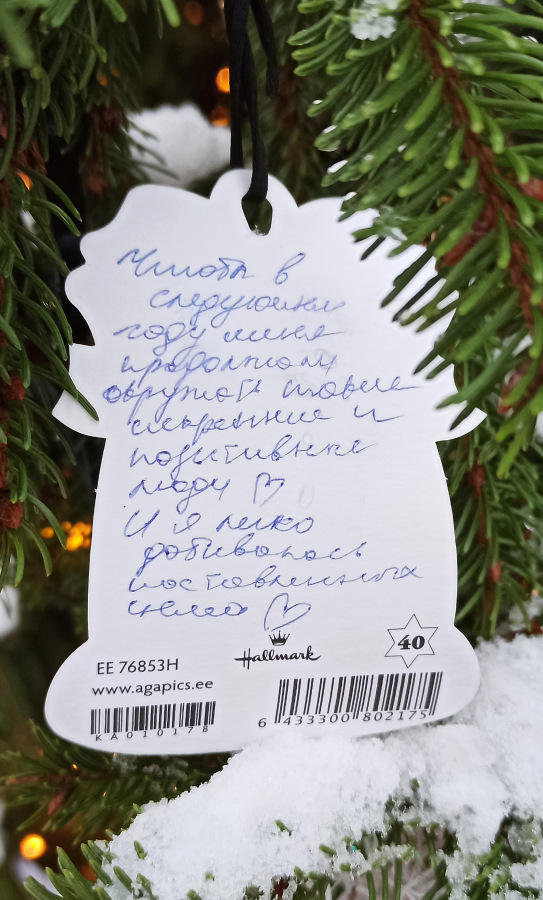 Чтобы в
следующем
году меня
продолжали
окружать такие
искренние и
позитивные
люди ♡
И я легко
добивалась
поставленных
целей ♡
40
EE 76853H
Hallmark
www.agapics.ee
KA010178
6 433300 802175